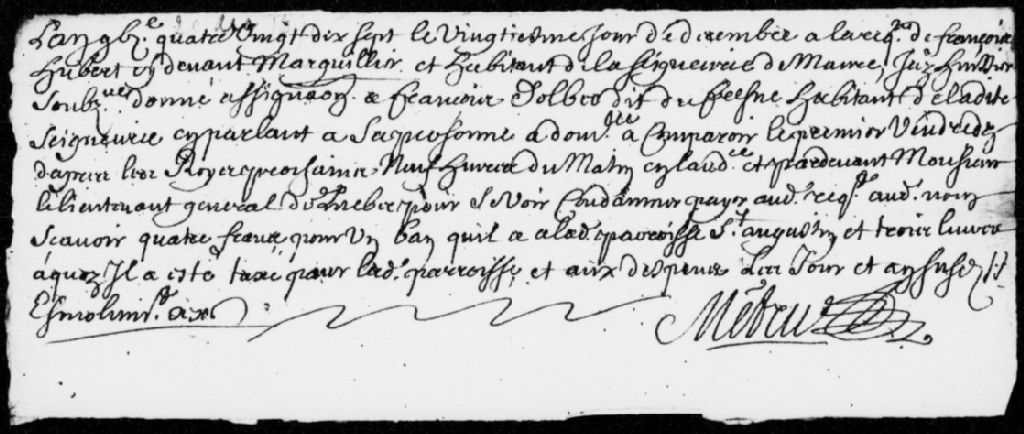 Lan gbc. quatre vingt dix sept le vingtiesme Jour de decembre a la req.te de françois
hubert cy devant Marguillier et habitant de la seigneurie de Maure, Je huissier
soubz.ne donné assignaon a francois Dolbec dit du fresne habitant de ladite
seigneurie en parlant a sa personne a dom.lle a Comparoir le premier vendredy
dapres les Roys prochaine Neuf heures du Matin en laud.ce et pardevant Monsieur
le lieutenant general de quebec pour se voir Condamner payer aud. req.t aud. nom
scavoir quatre francs pour un ban quil a a lad. parroisse st. augustin et trois livres
a quoy Il a esté taxé pour lad. parroisse et aux despens Les Jour et an susd.
Metru